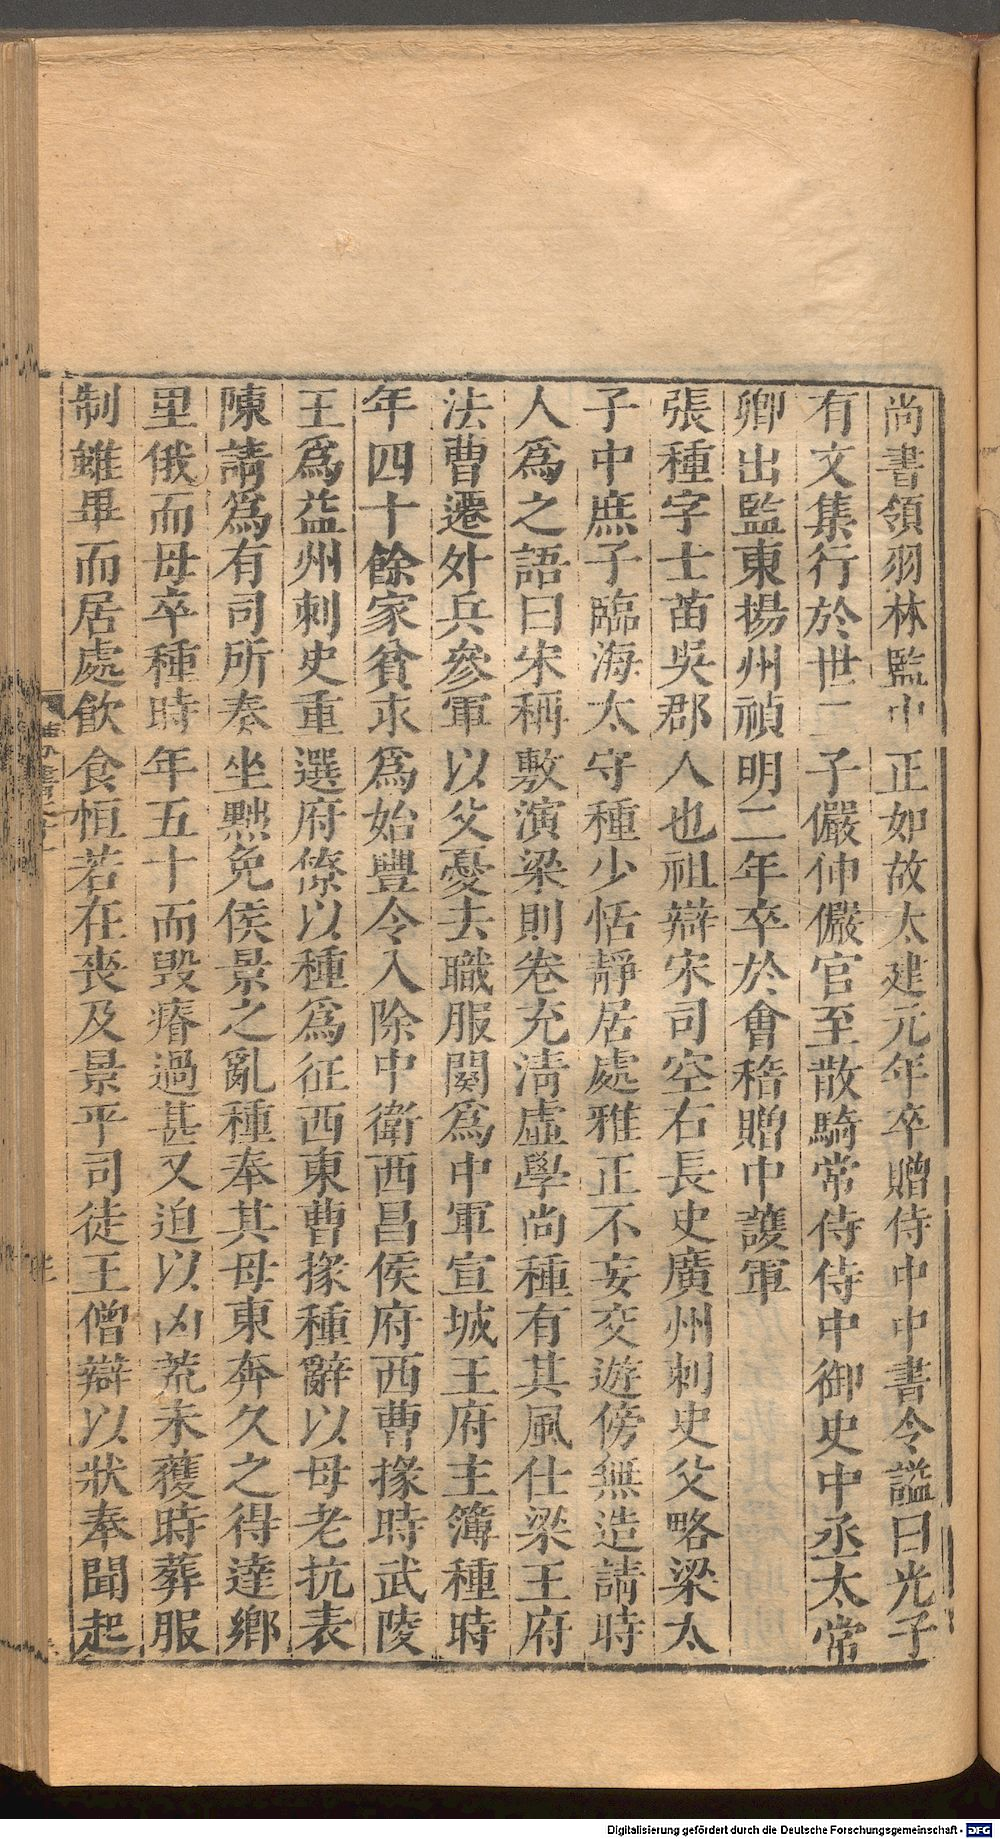 尚書領羽林監中正如故太建元年卒贈侍中中書令謚曰光子
有文集行於世二子儼伷儼官至散騎常侍侍中御史中丞太常
卿出監東揚州禎明二年卒於會稽贈中護軍
張種字士苗吳郡人也祖辯宋司空右長史廣州刺史父略梁太
子中庶子臨海太守種少恬靜居處雅正不妄交遊傍無造請時
人爲之語曰宋稱敷演梁則卷充淸虛學尚種有其風仕梁王府
法曹遷外兵參軍以父憂去職服闋爲中軍宣城王府主簿種時
年四十餘家貧求爲始豐令入除中衛西昌侯府西曹掾時武陵
王爲益州刺史重選府僚以種爲征西東曹掾種辭以母老抗表
陳請爲有司所奏坐黜免侯景之亂種奉其母東奔久之得達鄉
里俄而母卒種時年五十而毀瘠過甚又迫以凶荒未獲時葬服
制雖畢而居處飲食恒若在喪及景平司徒王僧辯以狀奉聞起
Digitalisierung gefördert durch die Deutsche Forschungsgemeinschaft - DFG